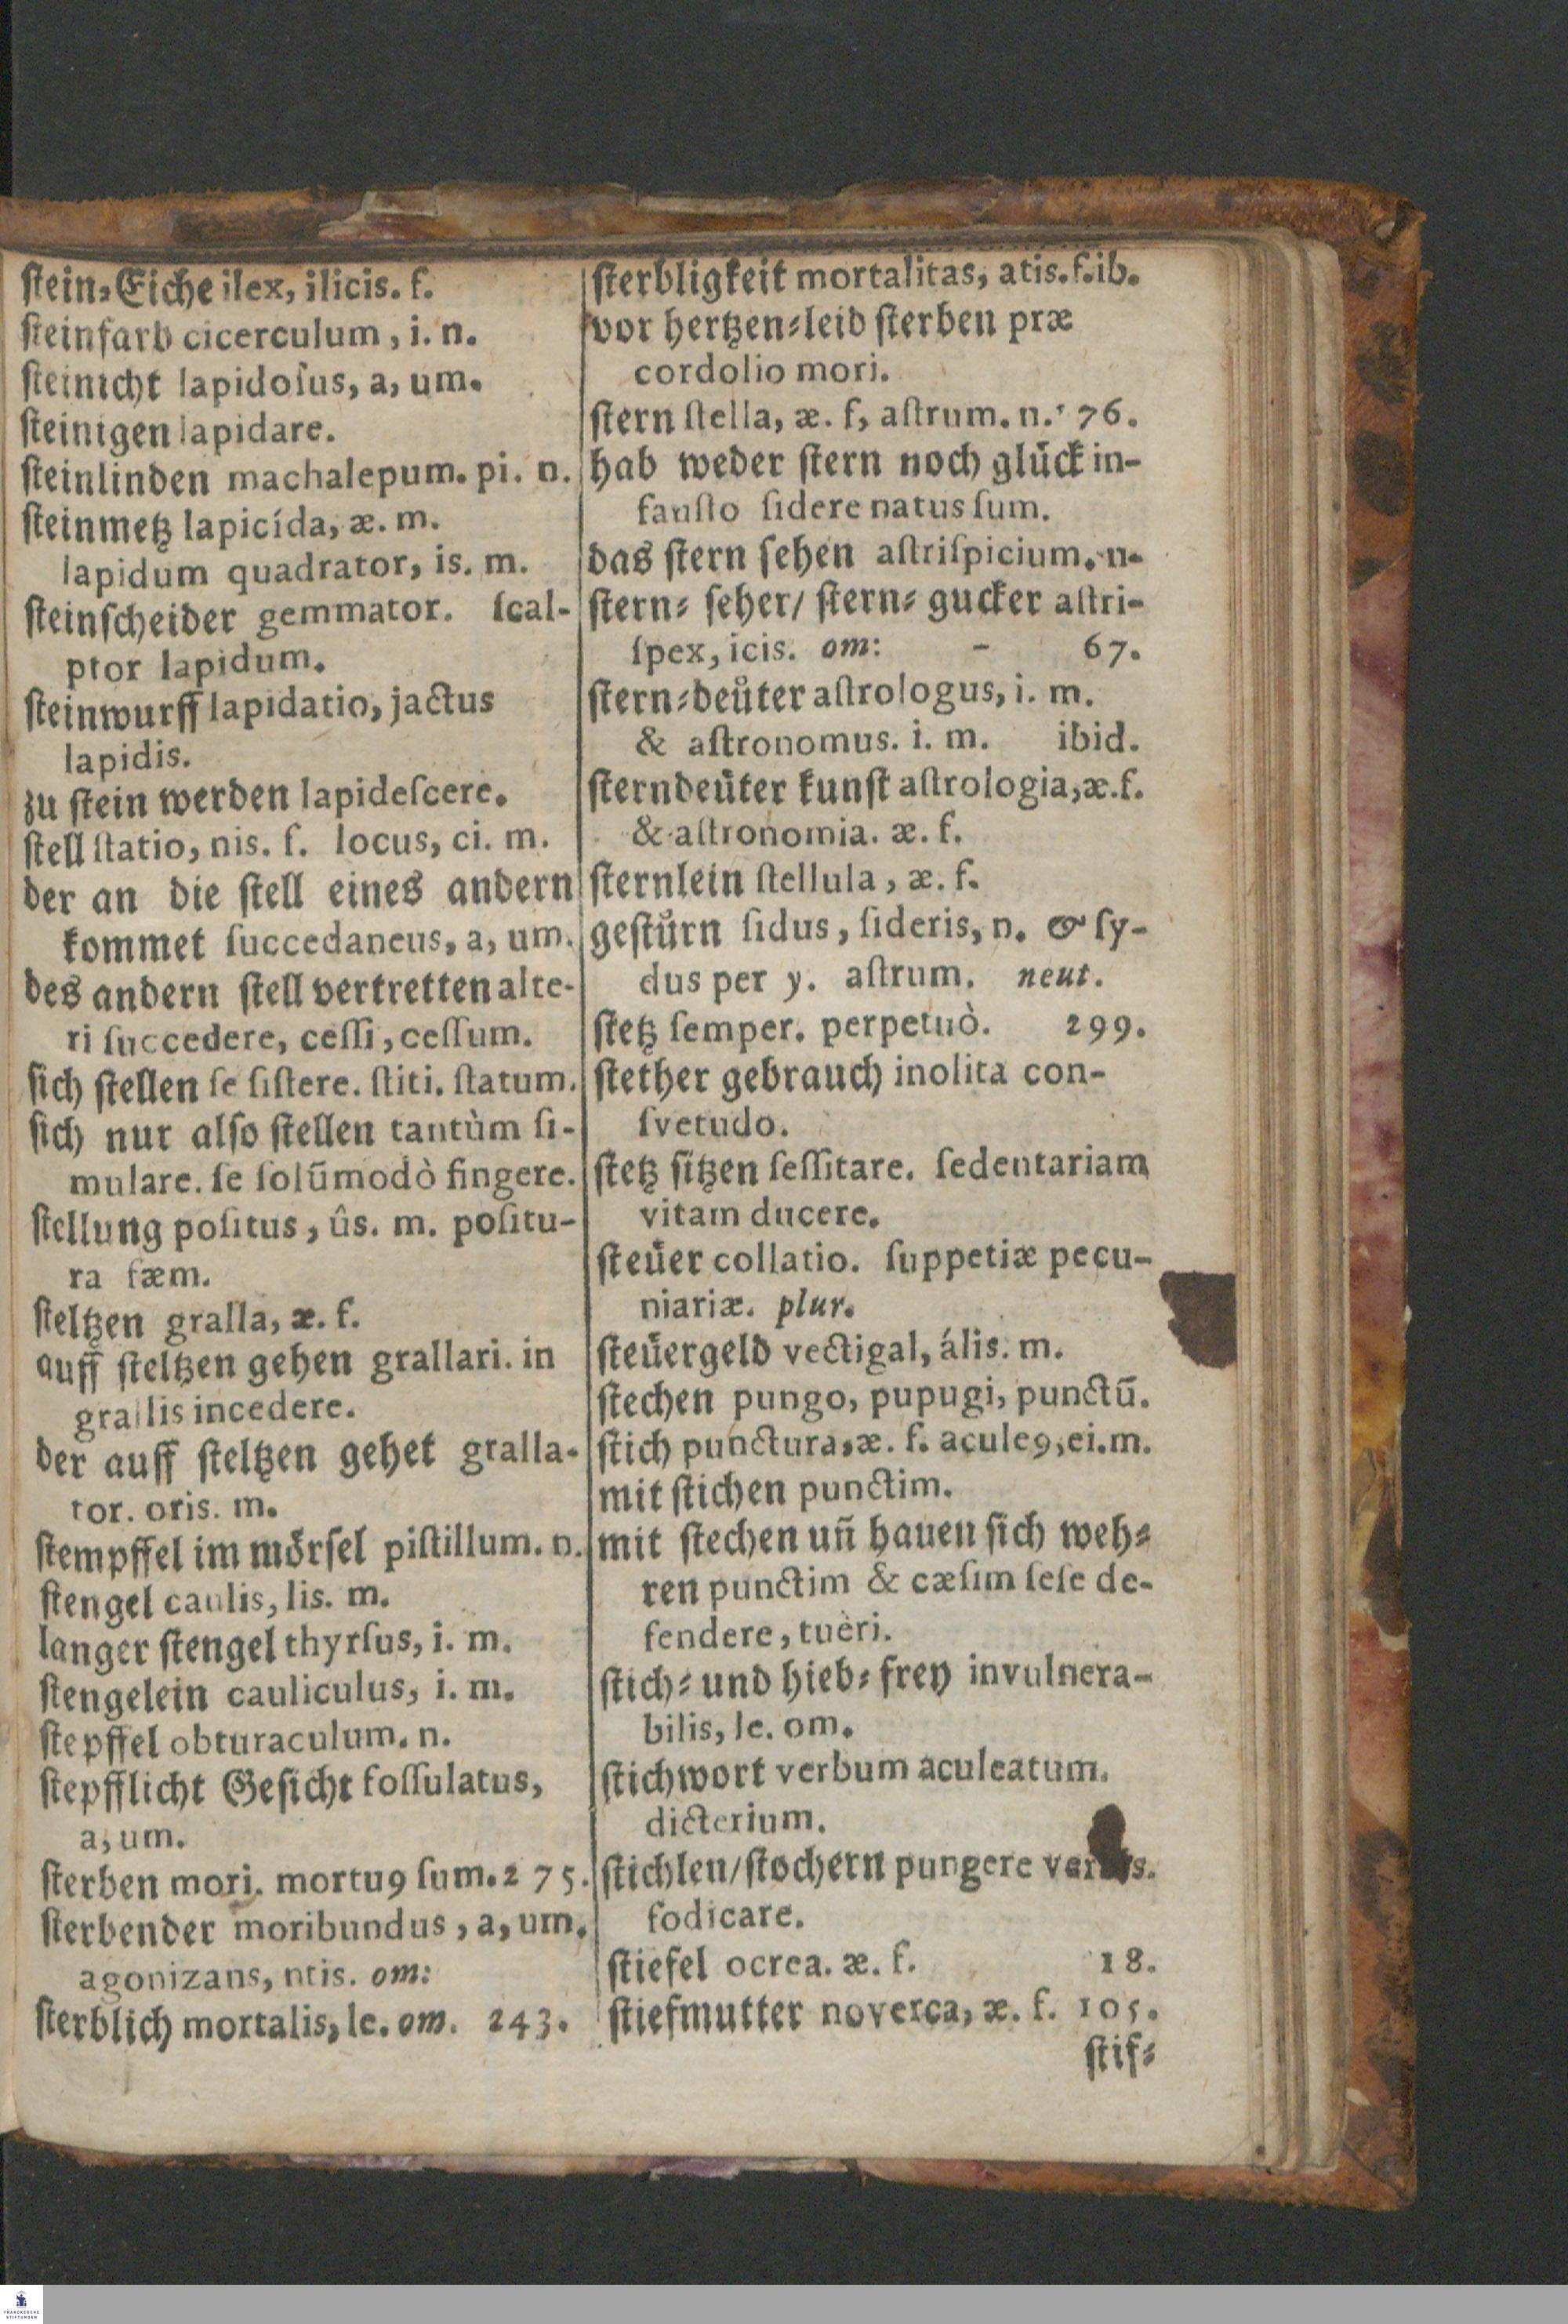 ſtein⸗Eiche ilex, ilicis. f.
ſteinfarb cicerculum, i. n.
ſteinicht lapidoſus, a, um.
ſteinigen lapidare.
ſteinlinden machalepum. pi. n.
ſteinmetz lapicída, æ. m.
lapidum quadrator, is. m.
ſteinſcheider gemmator. ſcal-
ptor lapidum.
ſteinwurff lapidatio, jactus
lapidis.
zu ſtein werden lapideſcere.
ſtell ſtatio, nis. f. locus, ci. m.
der an die ſtell eines andern
kommet ſuccedaneus, a, um.
des andern ſtell vertretten alte-
ri ſuccedere, ceſſi, ceſſum.
ſich ſtellen ſe ſiſtere. ſtiti. ſtatum.
ſich nur alſo ſtellen tantùm ſi-
mulare. ſe ſolūmodò fingere.
ſtellung poſitus, ûs. m. poſitu-
ra fæm.
ſteltzen gralla, æ. f.
auff ſteltzen gehen grallari. in
grallis incedere.
der auff ſteltzen gehet gralla-
tor. oris. m.
ſtempffel im mörſel piſtillum. n.
ſtengel caulis, lis. m.
langer ſtengel thyrſus, i. m.
ſtengelein cauliculus, i. m.
ſtepffel obturaculum. n.
ſtepfflicht Geſicht foſſulatus,
a, um.
ſterben mori. mortuꝰ ſum. 275.
ſterbender moribundus, a, um.
agonizans, ntis. om:
ſterblich mortalis, le. om. 243.
ſterbligkeit mortalitas, atis. f. ib.
vor hertzen⸗leid ſterben præ
cordolio mori.
ſtern ſtella, æ. f, aſtrum. n. 76.
hab weder ſtern noch glück in-
fauſto ſidere natus ſum.
das ſtern ſehen aſtriſpicium. n.
ſtern⸗ ſeher/ ſtern⸗ gucker aſtri-
ſpex, icis. om: - 67.
ſtern⸗deüter aſtrologus, i. m.
& aſtronomus. i. m. ibid.
ſterndeüter kunſt aſtrologia, æ. f.
& aſtronomia. æ. f.
ſternlein ſtellula, æ. f.
geſtürn ſidus, ſideris, n. & ſy-
dus per y. aſtrum. neut.
ſtetz ſemper. perpetuò. 299.
ſtether gebrauch inolita con-
ſvetudo.
ſtetz ſitzen ſeſſitare. ſedentariam
vitam ducere.
ſteüer collatio. ſuppetiæ pecu-
niariæ. plur.
ſteüergeld vectigal, ális. m.
ſtechen pungo, pupugi, punctū.
ſtich punctura, æ. f. aculeꝰ, ei. m.
mit ſtichen punctim.
mit ſtechen uñ hauen ſich weh⸗
ren punctim & cæſim ſeſe de-
fendere, tuèri.
ſtich⸗ und hieb⸗ frey invulnera-
bilis, le. om.
ſtichwort verbum aculeatum.
dicterium.
ſtichlen/ſtochern pungere
fodicare.
ſtiefel ocrea. æ. f. 18.
ſtiefmutter noverca, æ. f. 105.
ſtif⸗
FRANCKESCHE
STIFTUNGEN